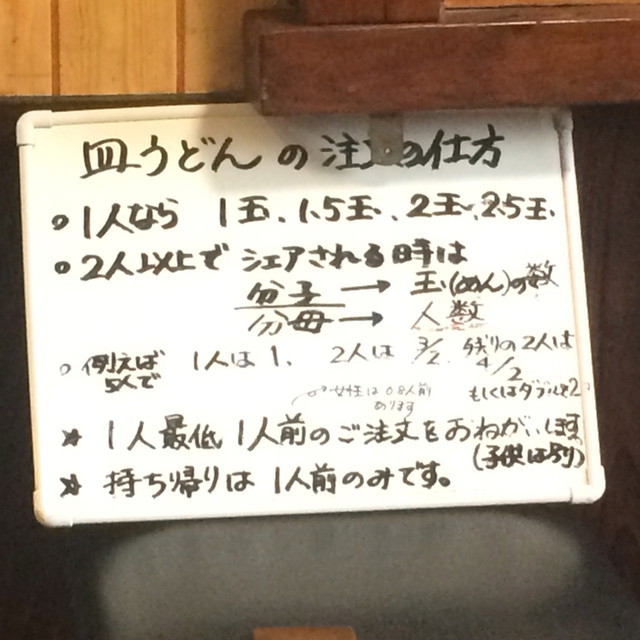 皿うどんの注文の仕方
○1人なら 1玉、1.5玉、2玉、2.5玉、
○2人以上でシェアされる時は
分子 → 玉(めん)の数
分母 → 人数
○例えば 5人で 1人は 1、 2人は 3/2、 残りの2人は 4/2
もしくはダブルを2
女性は0.8人前
あります
★ 1人最低 1人前のご注文をおねがいします
(子供は別り)
★ 持ち帰りは 1人前のみです。